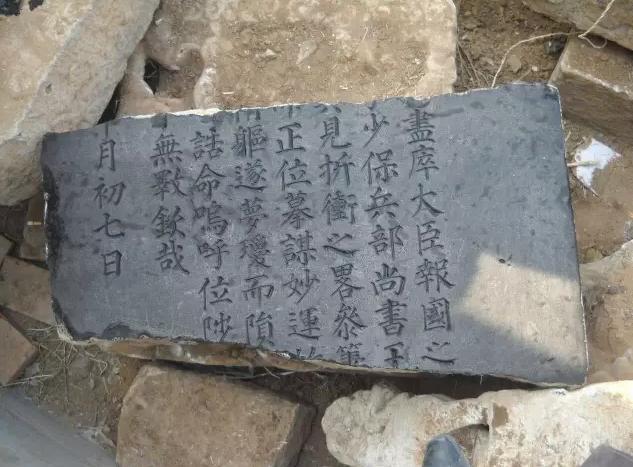 盡瘁大臣報國之
少保兵部尚書王
見折衝之畧叅
正位幕謀妙運
軀遂夢瓊而隕
誥命嗚呼位陟
無斁欽哉
月初七日